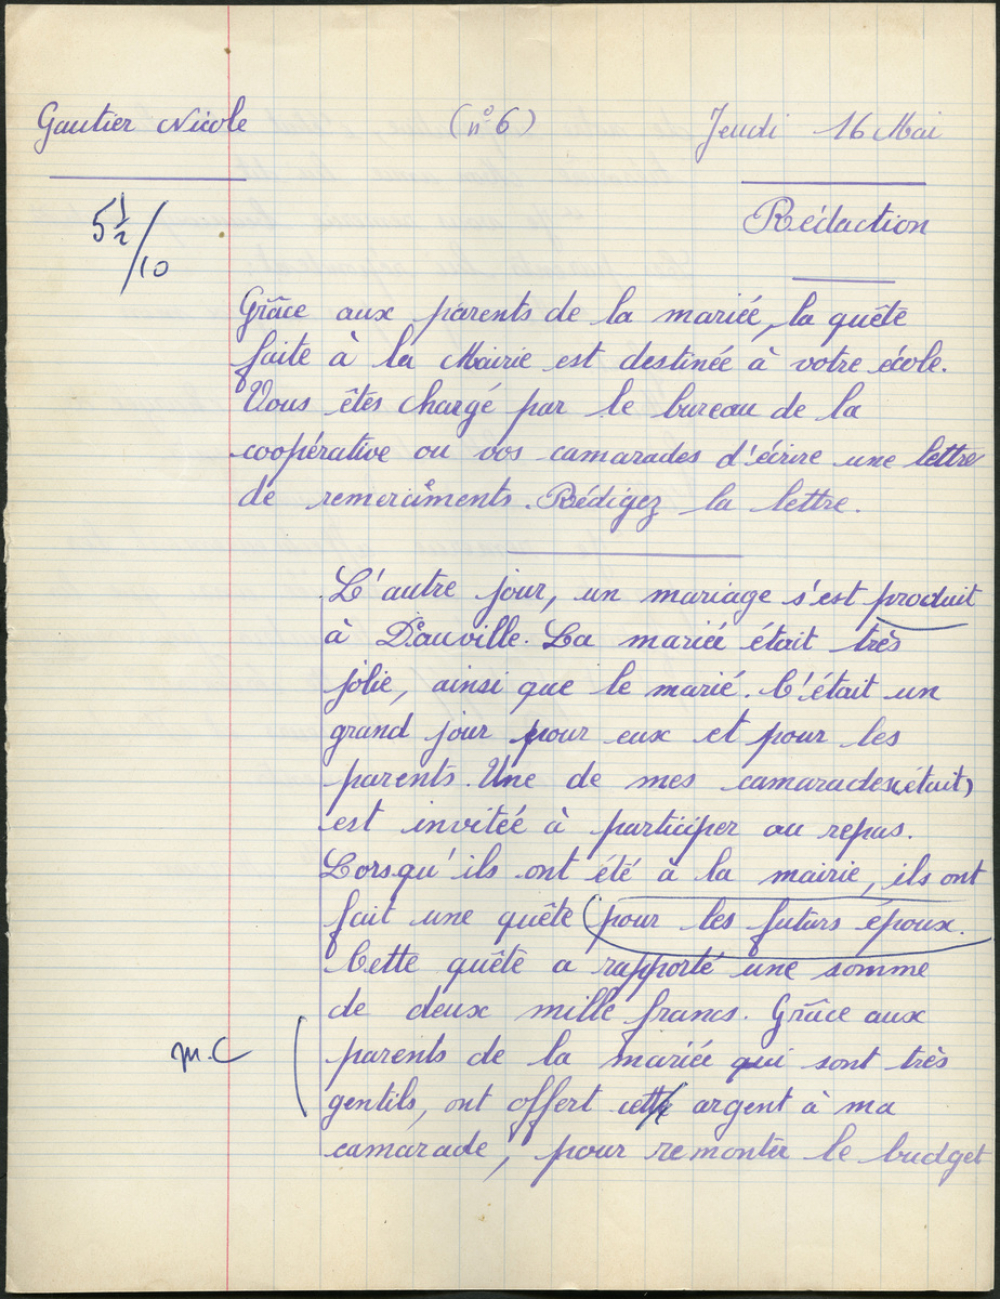 Gautier Nicole (n°6) Jeudi 16 Mai
5 1/2 /10
Rédaction
Grâce aux parents de la mariée, la quête
faite à la Mairie est destinée à votre école.
Vous êtes chargé par le bureau de la
coopérative ou vos camarades d'écrire une lettre
de remerciments. Rédigez la lettre.
L'autre jour, un mariage s'est produit
à Deauville. La mariée était très
jolie, ainsi que le marié. C'était un
grand jour pour eux et pour les
parents. Une de mes camarades (était)
est invitée à participer au repas.
Lorsqu'ils ont été à la mairie, ils ont
fait une quête (pour les futurs époux.
Cette quête a rapporté une somme
de deux mille francs. Grâce aux
m.C ( parents de la mariée qui sont très
gentils, ont offert cette argent à ma
camarade, pour remonter le budget